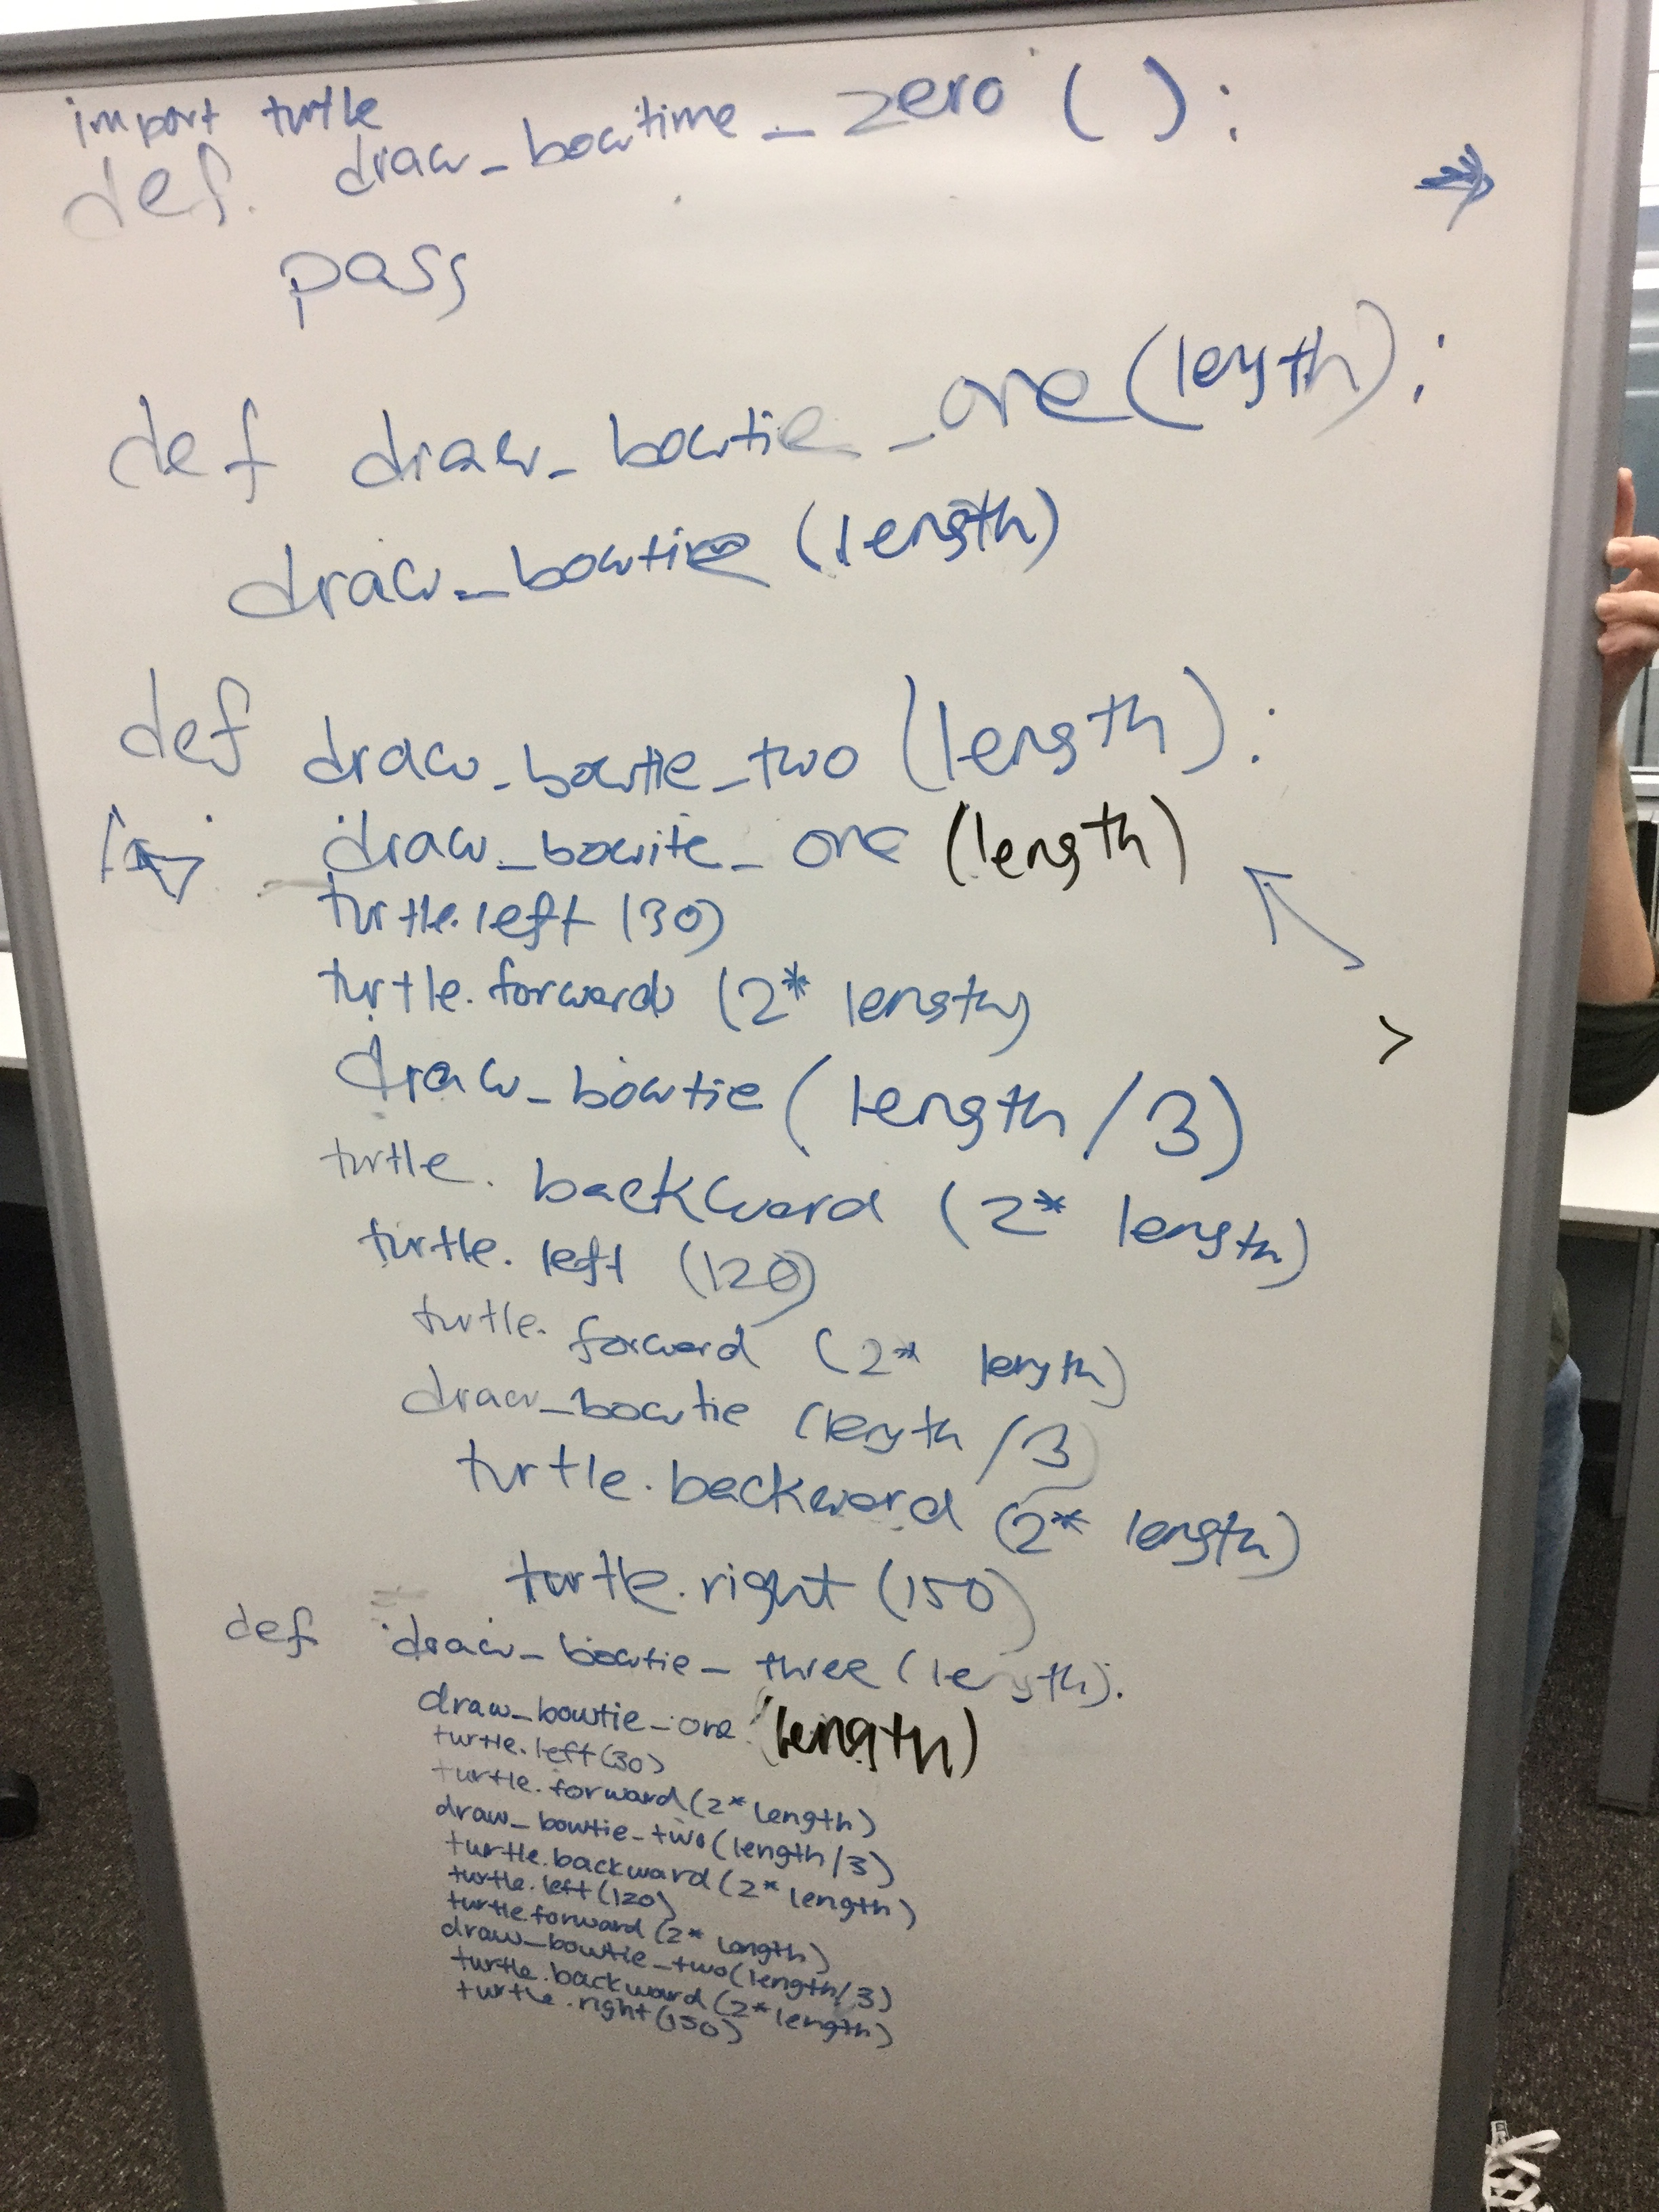 import turtle
def draw_bowtime_zero():
pass
def draw_bowtie_one(length):
draw_bowtie (length)
def draw_bowtie_two (length):
draw_bowite_one (length)
turtle.left (30)
turtle.forward (2* length)
draw_bowtie (length/3)
turtle. backward (2* length)
turtle. left (120)
turtle. forward (2* length)
draw_bowtie (length/3)
turtle.backward (2* length)
turtle.right (150)
def draw_bowtie_three (length):
draw_bowtie_one (length)
turtle.left(30)
turtle.forward(2* length)
draw_bowtie_two(length/3)
turtle.backward(2* length)
turtle.left(120)
turtle.forward(2* length)
draw_bowtie_two(length/3)
turtle.backward(2* length)
turtle.right(150)